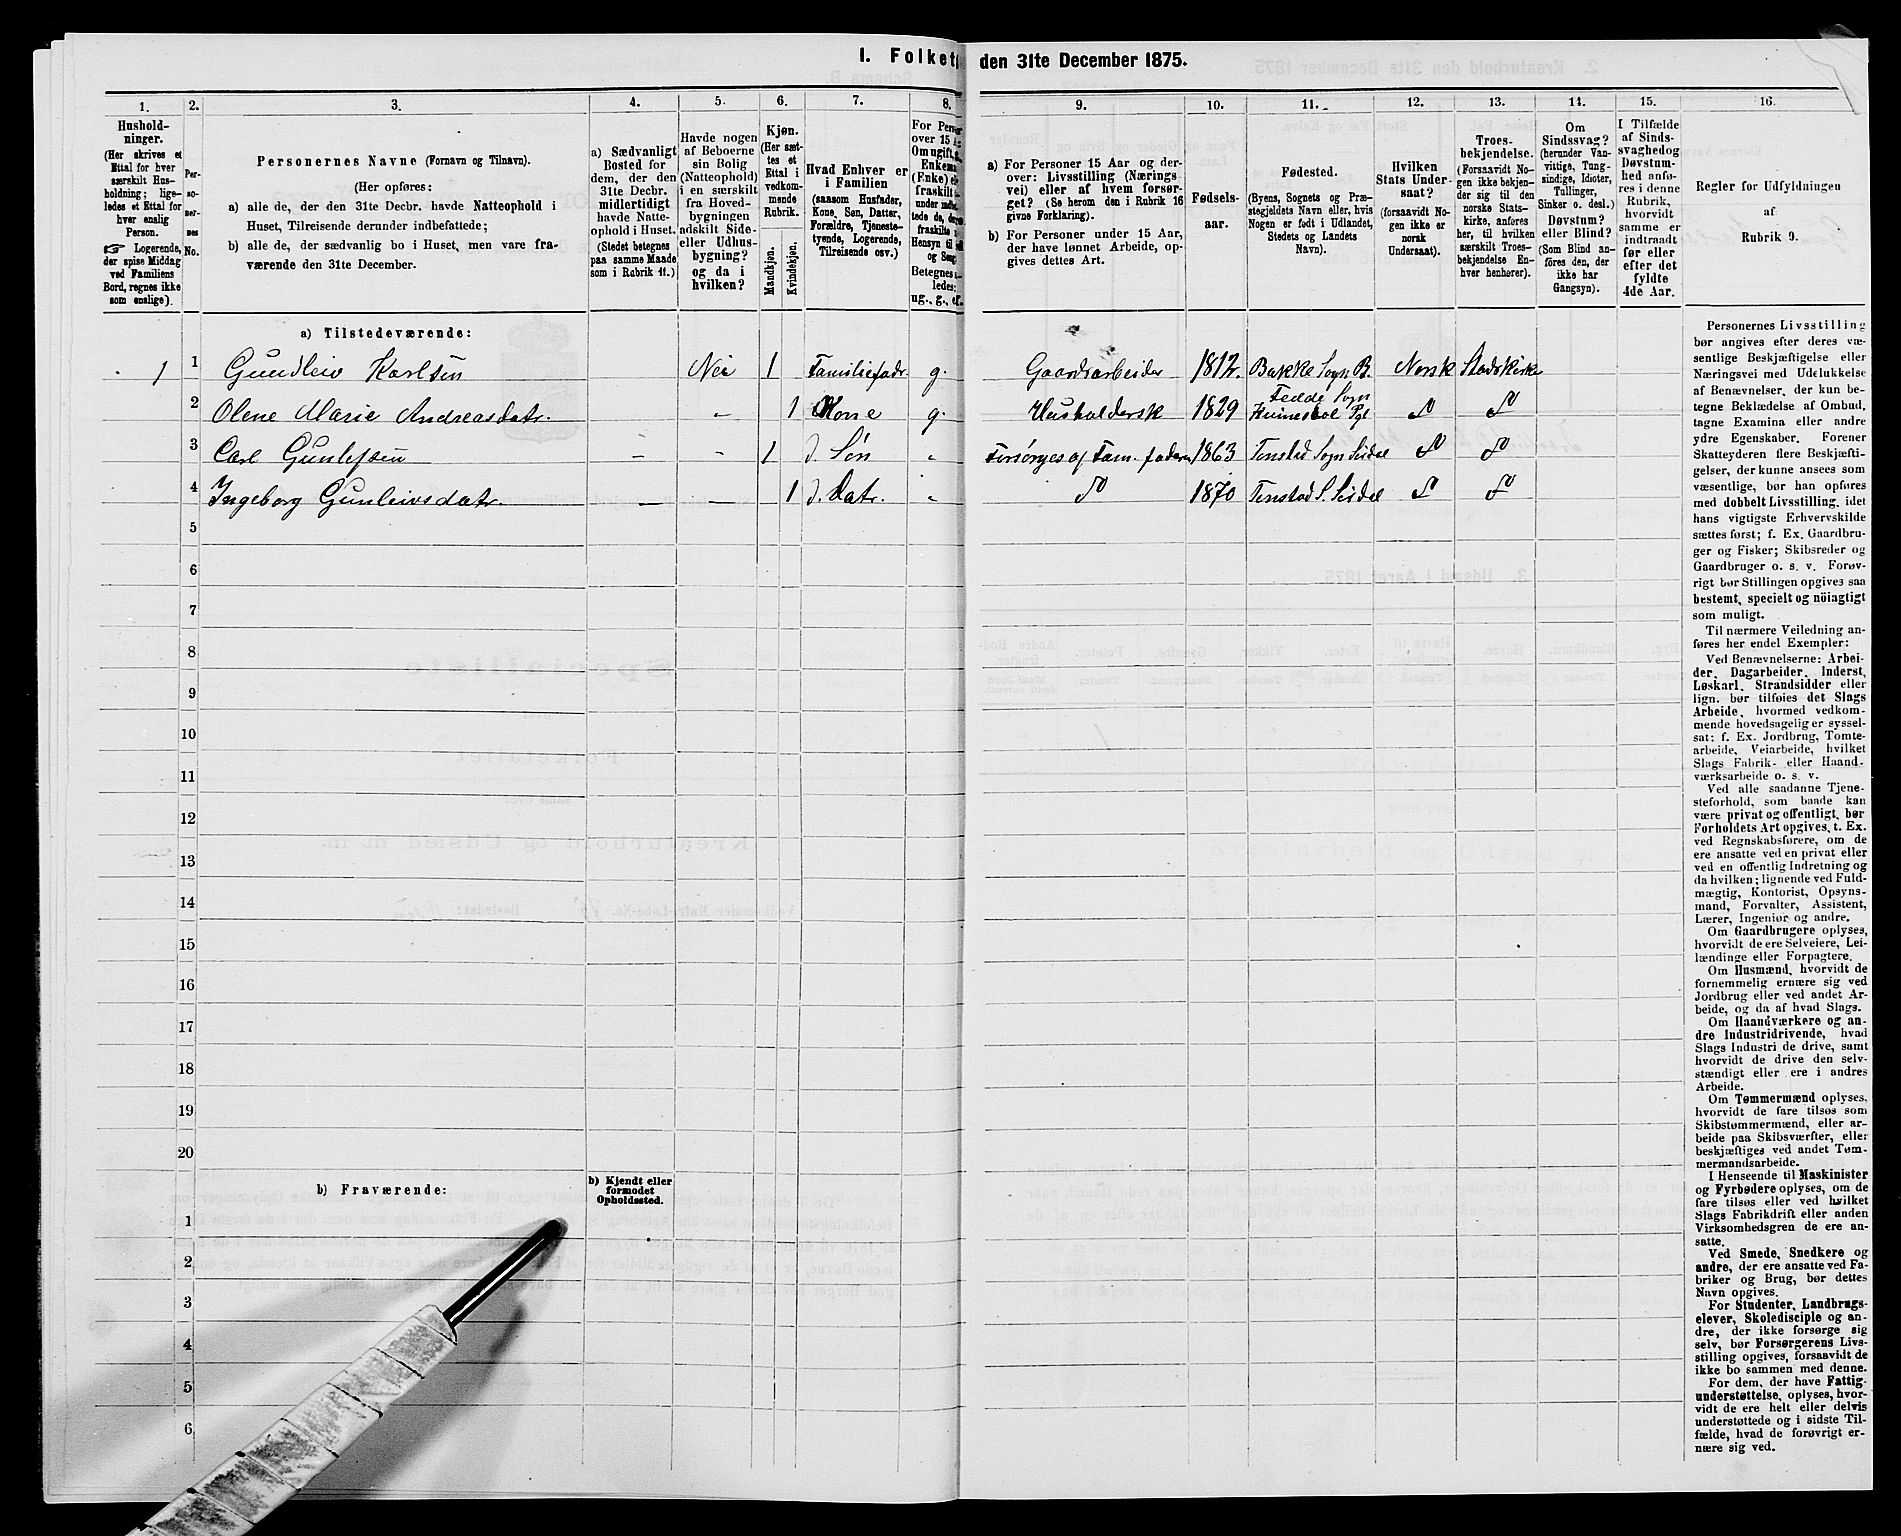 I. Folket
den 31te December 1875.
1.
2.
3.
4.
5.
6.
7.
8.
9.
10.
11.
12.
13.
14.
15.
16.
Hushold-
ninger.
(Her skrives et
Ettal for hver
særskilt Hus-
holdning; lige-
ledes et Ettal for
hver enslig
Person.
☞ Logerende,
der spise Middag
ved Familiens
Bord, regnes ikke
som enslige).
Per-
so-
ner-
nes
No.
Personernes Navne (Fornavn og Tilnavn).
(Her opføres:
a) alle de, der den 31te Decbr. havde Natteophold i
Huset, Tilreisende derunder indbefattede;
b) alle de, der sædvanlig bo i Huset, men vare fra-
værende den 31te December.
a) Sædvanligt
Bosted for
dem, der den
31te Decbr.
midlertidigt
havde Natte-
ophold i Huset.
(Stedet betegnes
paa samme Maade
som i Rubrik 11.)
Havde nogen
af Beboerne
sin Bolig
(Natteophold)
i en særskilt
fra Hoved-
bygningen
adskilt Side-
eller Udhus-
bygning?
og da i
hvilken?
Kjøn.
(Her sæt-
tes et
Ettal i
vedkom-
mende
Rubrik.
Mandkjøn.
Kvindekjøn.
Hvad Enhver er
i Familien
(saasom Husfader,
Kone, Søn, Datter,
Forældre, Tjeneste-
tyende, Logerende,
Tilreisende osv.)
For Perso
over 15 A
Om ugift,
Enkema
(Enke) el
fraskilt
a) For Personer 15 Aar og der-
over: Livsstilling (Nærings
vei) eller af hvem forsør-
get? (Se herom den i Rubrik 16
givne Forklaring).
b) For Personer under 15 Aar,
der have lønnet Arbeide, op-
gives dettes Art.
Fødsels-
aar.
Fødested.
(Byens, Sognets og Præ-
stegjeldets Navn eller, hvis
Nogen er født i Udlandet,
Stedets og Landets
Navn).
Hvilken
Stats Under-
saat?
(forsaavidt No-
gen ikke er
norsk
Undersaat).
Troes-
bekjendelse.
(Forsaavidt No-
gen ikke bekjen-
der sig til den
norske Stats-
kirke, anføres
her, til hvilken
særskilt Troes-
bekjendelse En-
hver henhører).
Om
Sindssvag?
(herunder Van-
vittige, Tung-
sindige, Idioter,
Tullinger,
Sinker o. desl.)
Døvstum?
eller Blind?
(Som Blind an-
føres den, der
ikke har
Gangsyn).
I Tilfælde
af Sinds-
svaghed og
Døvstum-
hed anfø-
res i denne
Rubrik,
hvorvidt
samme er
indtraadt
før eller
efter det
fyldte
4de Aar.
Regler for Udfyldningen
af
Rubrik 9.
a) Tilstedeværende:
1 1 Gundleiv Karlsen Nei 1 Familiefadr. g. Gaardsarbeider 1812. Bakke Sogn B. Norsk Statskirke
2 Olene Marie Andreasdatr. 1 Kone g 1829 Fedde Sogn
3 Carl Gunlefsen 1 d. Søn Forsørges af Fam. faderen 1863 Tonstad Sogn Sirdal
4 Ingeborg Gunleivsdatr. 1 d. Datr. 1870 Tonstad S. Sirdal
5
6
7
8
9
10
11
12
13
14
15
16
17
18
19
20
b) Fraværende:
b) Kjendt eller
formodet
Opholdssted.
1
2
3
4
5
6
Personernes Livsstilling
bør angives efter deres væ-
sentlige Beskjæftigelse eller
Næringsvei med Udelukkelse
af Benævnelser, der kun be-
tegne Beklædelse af Ombud,
tagne Examina eller andre
ydre Egenskaber. Forener
Skatteyderen flere Beskjæfti-
gelser, der kunne ansees som
væsentlige, bør han opføres
med dobbelt Livsstilling, idet
hans vigtigste Erhvervskilde
sættes først; f. Ex. Gaardbru-
ger og Fisker; Skibsreder og
Gaardbruger o. s. v. Forøv-
rigt bør Stillingen opgives saa
bestemt, specielt og nöiagtigt
som muligt.
Til nærmere Veiledning an-
føres her endel Exempler:
Ved Benævnelserne: Arbei-
der, Dagarbeider, Inderst,
Løskarl, Strandsidder eller
lign. bør tilføies det Slags
Arbeide, hvormed vedkom-
mende hovedsagelig er syssel-
sat; f. Ex. Jordbrug, Tomte-
arbeide, Veiarbeide, hvilket
Slags Fabrik- eller Haand-
værksarbeide o. s. v.
Ved alle saadanne Tjene-
steforhold, som baade kan
være privat og offentligt, bør
Forholdets Art opgives, t. Ex.
ved Regnskabsførere, om de
ere ansatte ved en privat eller
ved en offentlig Indretning og
da hvilken; lignende ved Fuld-
mægtig, Kontorist, Opsyns-
mand, Forvalter, Assistent,
Lærer, Ingeniør og andre.
Om Gaardbrugere oplyses,
hvorvidt de ere Selveiere, Lei-
lændinge eller Forpagtere.
Om Husmænd, hvorvidt de
fornemmelig ernære sig ved
Jordbrug eller ved andet Ar-
beide, og da af hvad Slags.
Om Haandværkere og an-
dre Industridrivende, hvad
Slags Industri de drive, samt
hvorvidt de drive den selv-
stændigt eller ere i andres
Arbeide.
Om Tømmermænd oplyses,
hvorvidt de fare tilsøs som
Skibstømmermænd, eller ar-
beide paa Skibsværfter, eller
beskjæftiges ved andet Tøm-
mermandsarbeide.
I Henseende til Maskinister
og Fyrbødere oplyses, om de
fare tilsøs eller ved hvilket
Slags Fabrikdrift eller anden
Virksomhedsgren de ere an-
satte.
Ved Smede, Snedkere og
andre, der ere ansatte ved Fa-
briker og Brug, bør dettes
Navn opgives.
For Studenter, Landbrugs-
elever, Skoledisciple og an-
dre, der ikke forsørge sig
selv, bør Forsørgerens Livs-
stilling opgives, forsaavidt de
ikke bo sammen med denne.
For dem, der have Fattig-
understøttelse, oplyses, hvor-
vidt de ere helt eller delvis
understøttede og i sidste Til-
fælde, hvad de forøvrigt er-
nære sig ved.